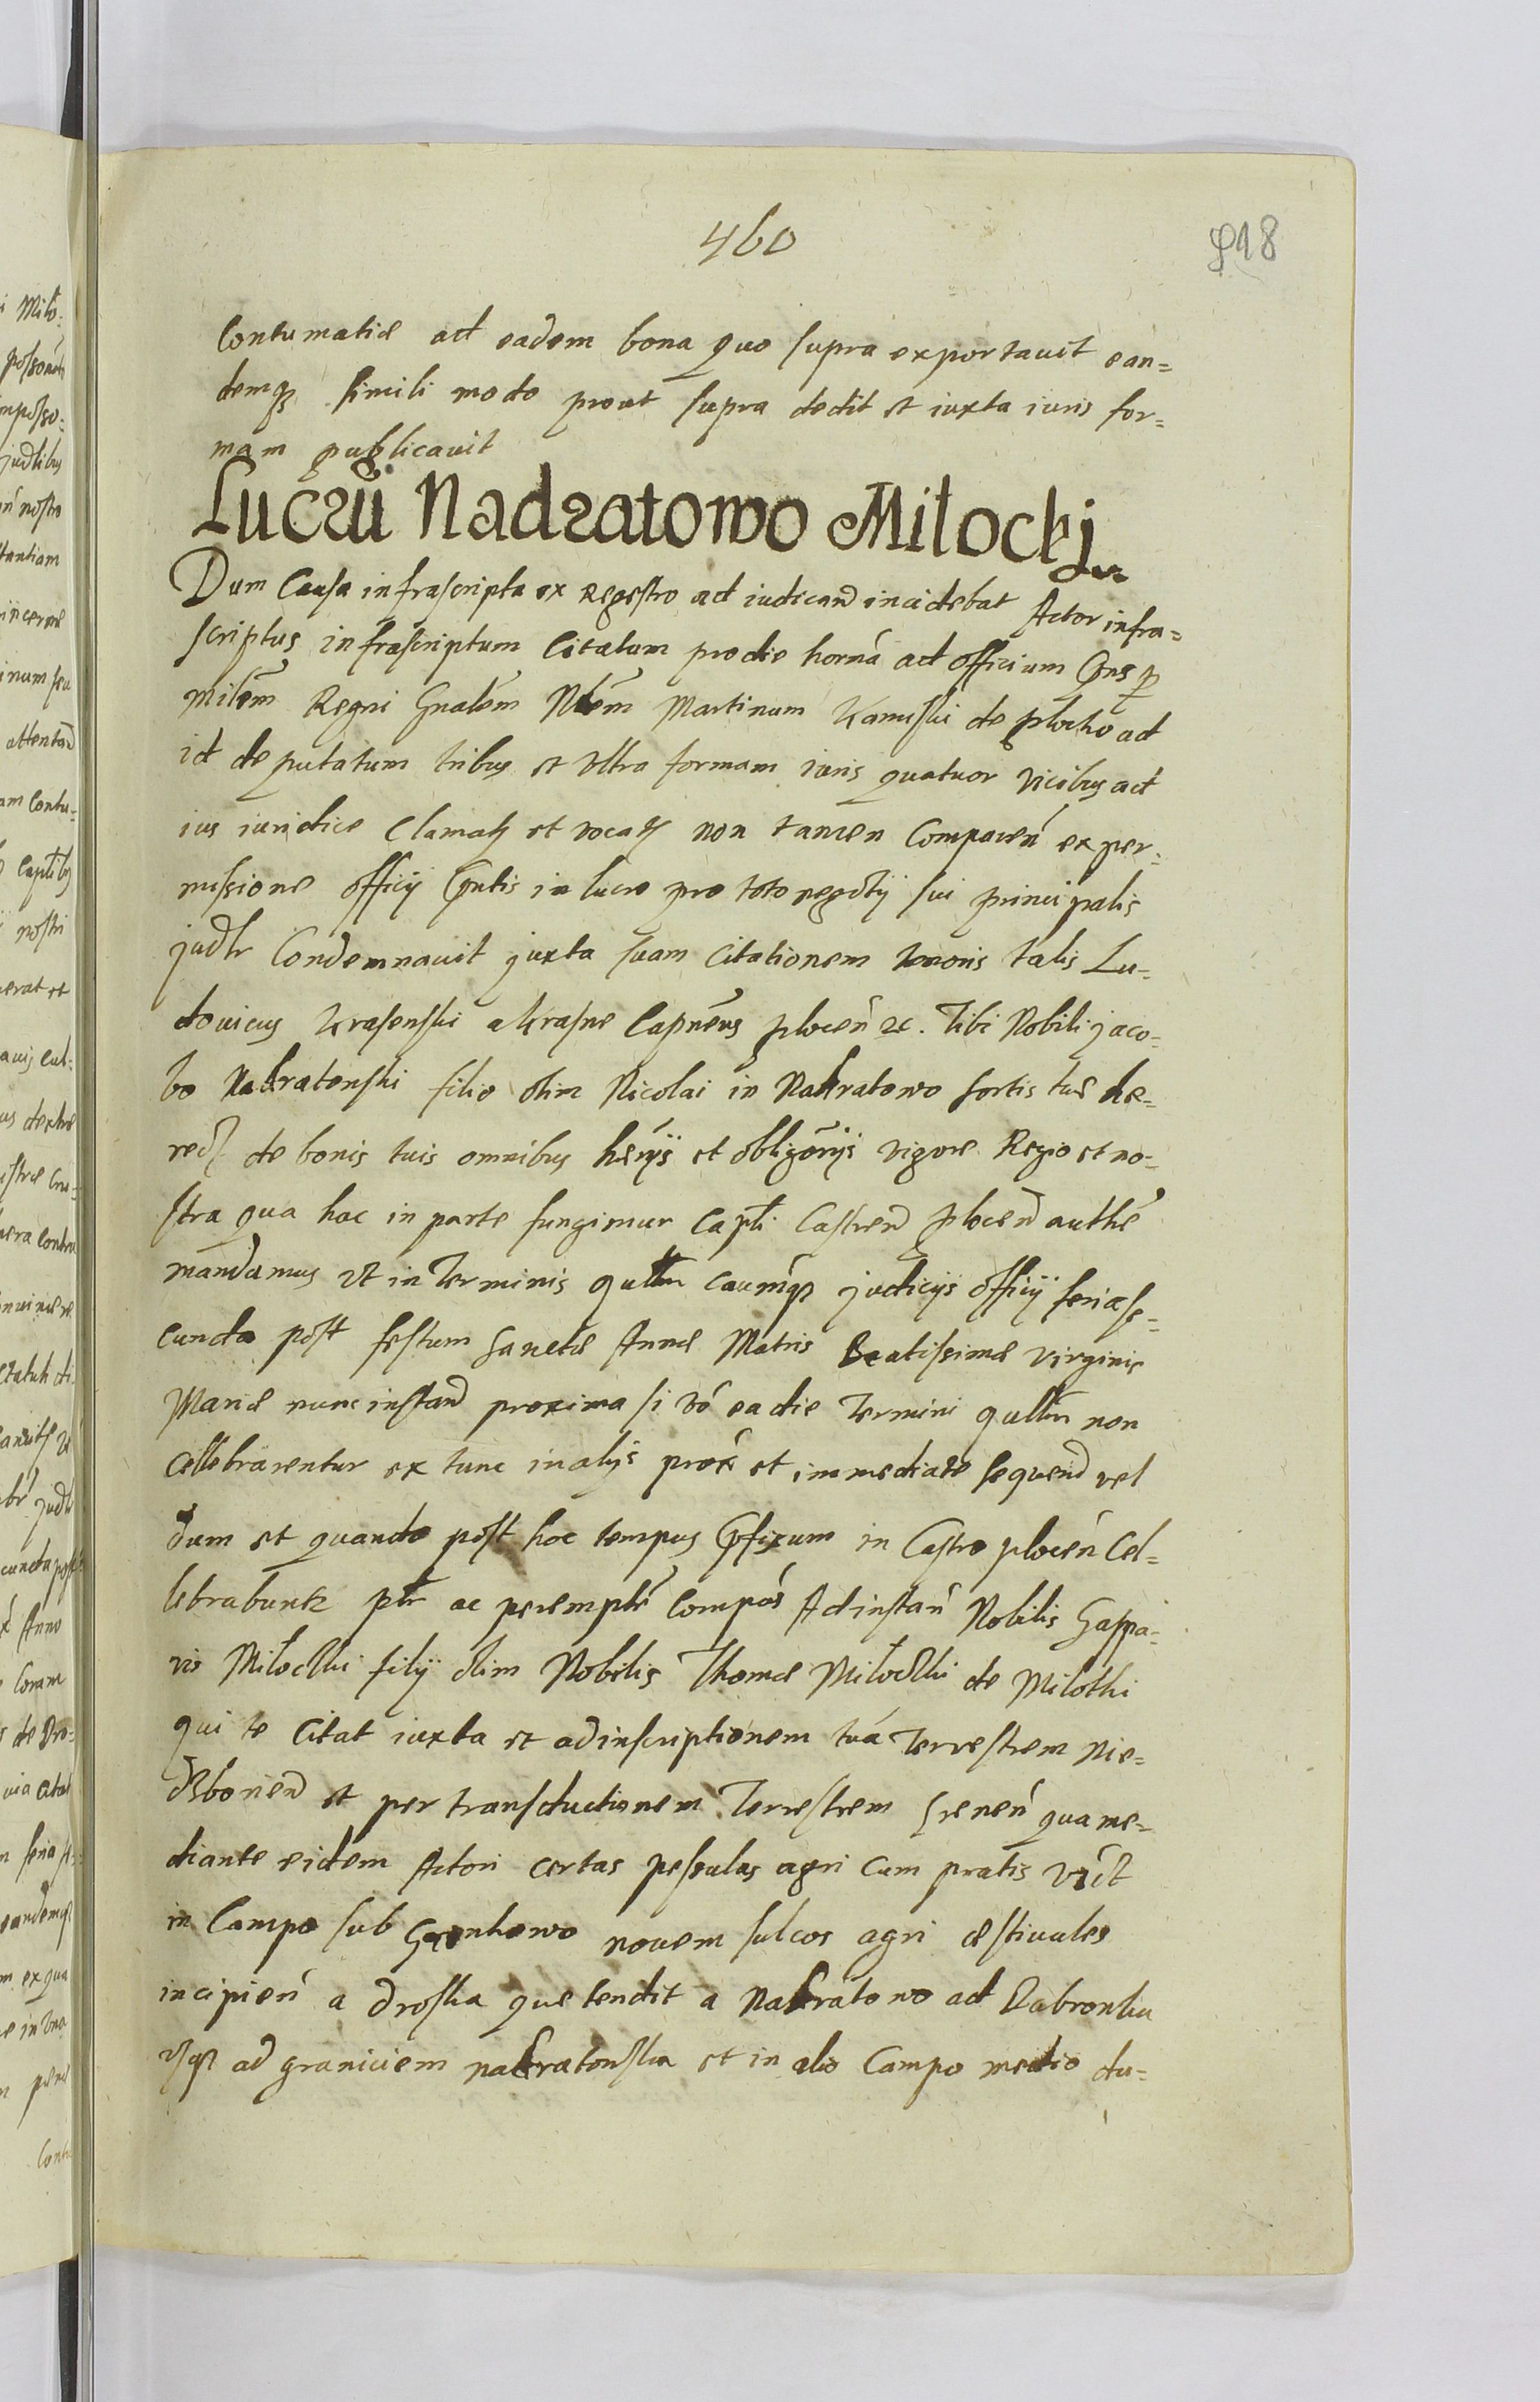 460
918
Contumatiæ ad eadem bona quo supra exportauit ean=
demq3 simili modo prout supra dedit et iuxta iuris for=
mam publicauit
Lucrũ Nadratowo Miłockj
Dum Causa infrascripta ex Regestro ad iudicand incidebat Actor infra=
scriptus infrascriptum Citatum pro die horná ad officium Gns p
milẽm Regni Gnalẽm Nlẽm Martinum Kamiski de plocko ad
id deputatum tribus et Vltra formam iuris quatuor vicibus ad
ius iuridice Clamat et vocat non tamen Comparen ex per=
missione officij Gntis in lucro pro toto negotij sui principalis
judlr Condemnauit juxta suam Citationem tenoris talis Lu=
douicus Krasenski a Krasne Capneus plocen etc. Tibi Nobili jaco=
bo Nadratonski filio olim Nicolai in Nadratowo sortis tuæ hæ=
red de bonis tuis omnibus hẽrijs et obligõrijs vigore Regio et no=
stra qua hac in parte fungimur Capti Castrend plocend authe
mandamus vt in Terminis qullrn caumq3 judicijs officij feria se=
cunda post festum Sanctæ Annæ Matris Beatissimæ virginis
Mariæ nunc instand proxima si vó ea die Termini qullrn non
Cellebrarentur ex tunc in alijs prox et immediate sequend vel
dum et quando post hoc tempus Gpfixum in Castro plocen Cel=
lebrabunt ptr ac peremptẽ Compas Ad instan Nobilis Gaspa=
ris Miłocki filij olim Nobilis Thomæ Miłocki de Miłotki
qui te Citat iuxta et ad inscriptionem tuá Terrestrem Nie=
dzborien et per transductionem Terrestrem Srenen qua me=
diante eidem Actori certas peseulas agri cum pratis vidt
in Campo sub novem sulcos agri æstiuales
incipien a droska quæ tendit a Nadratowo ad Dabronku
vsq3 ad graniciem nadratonska et in alio Campo medio du=